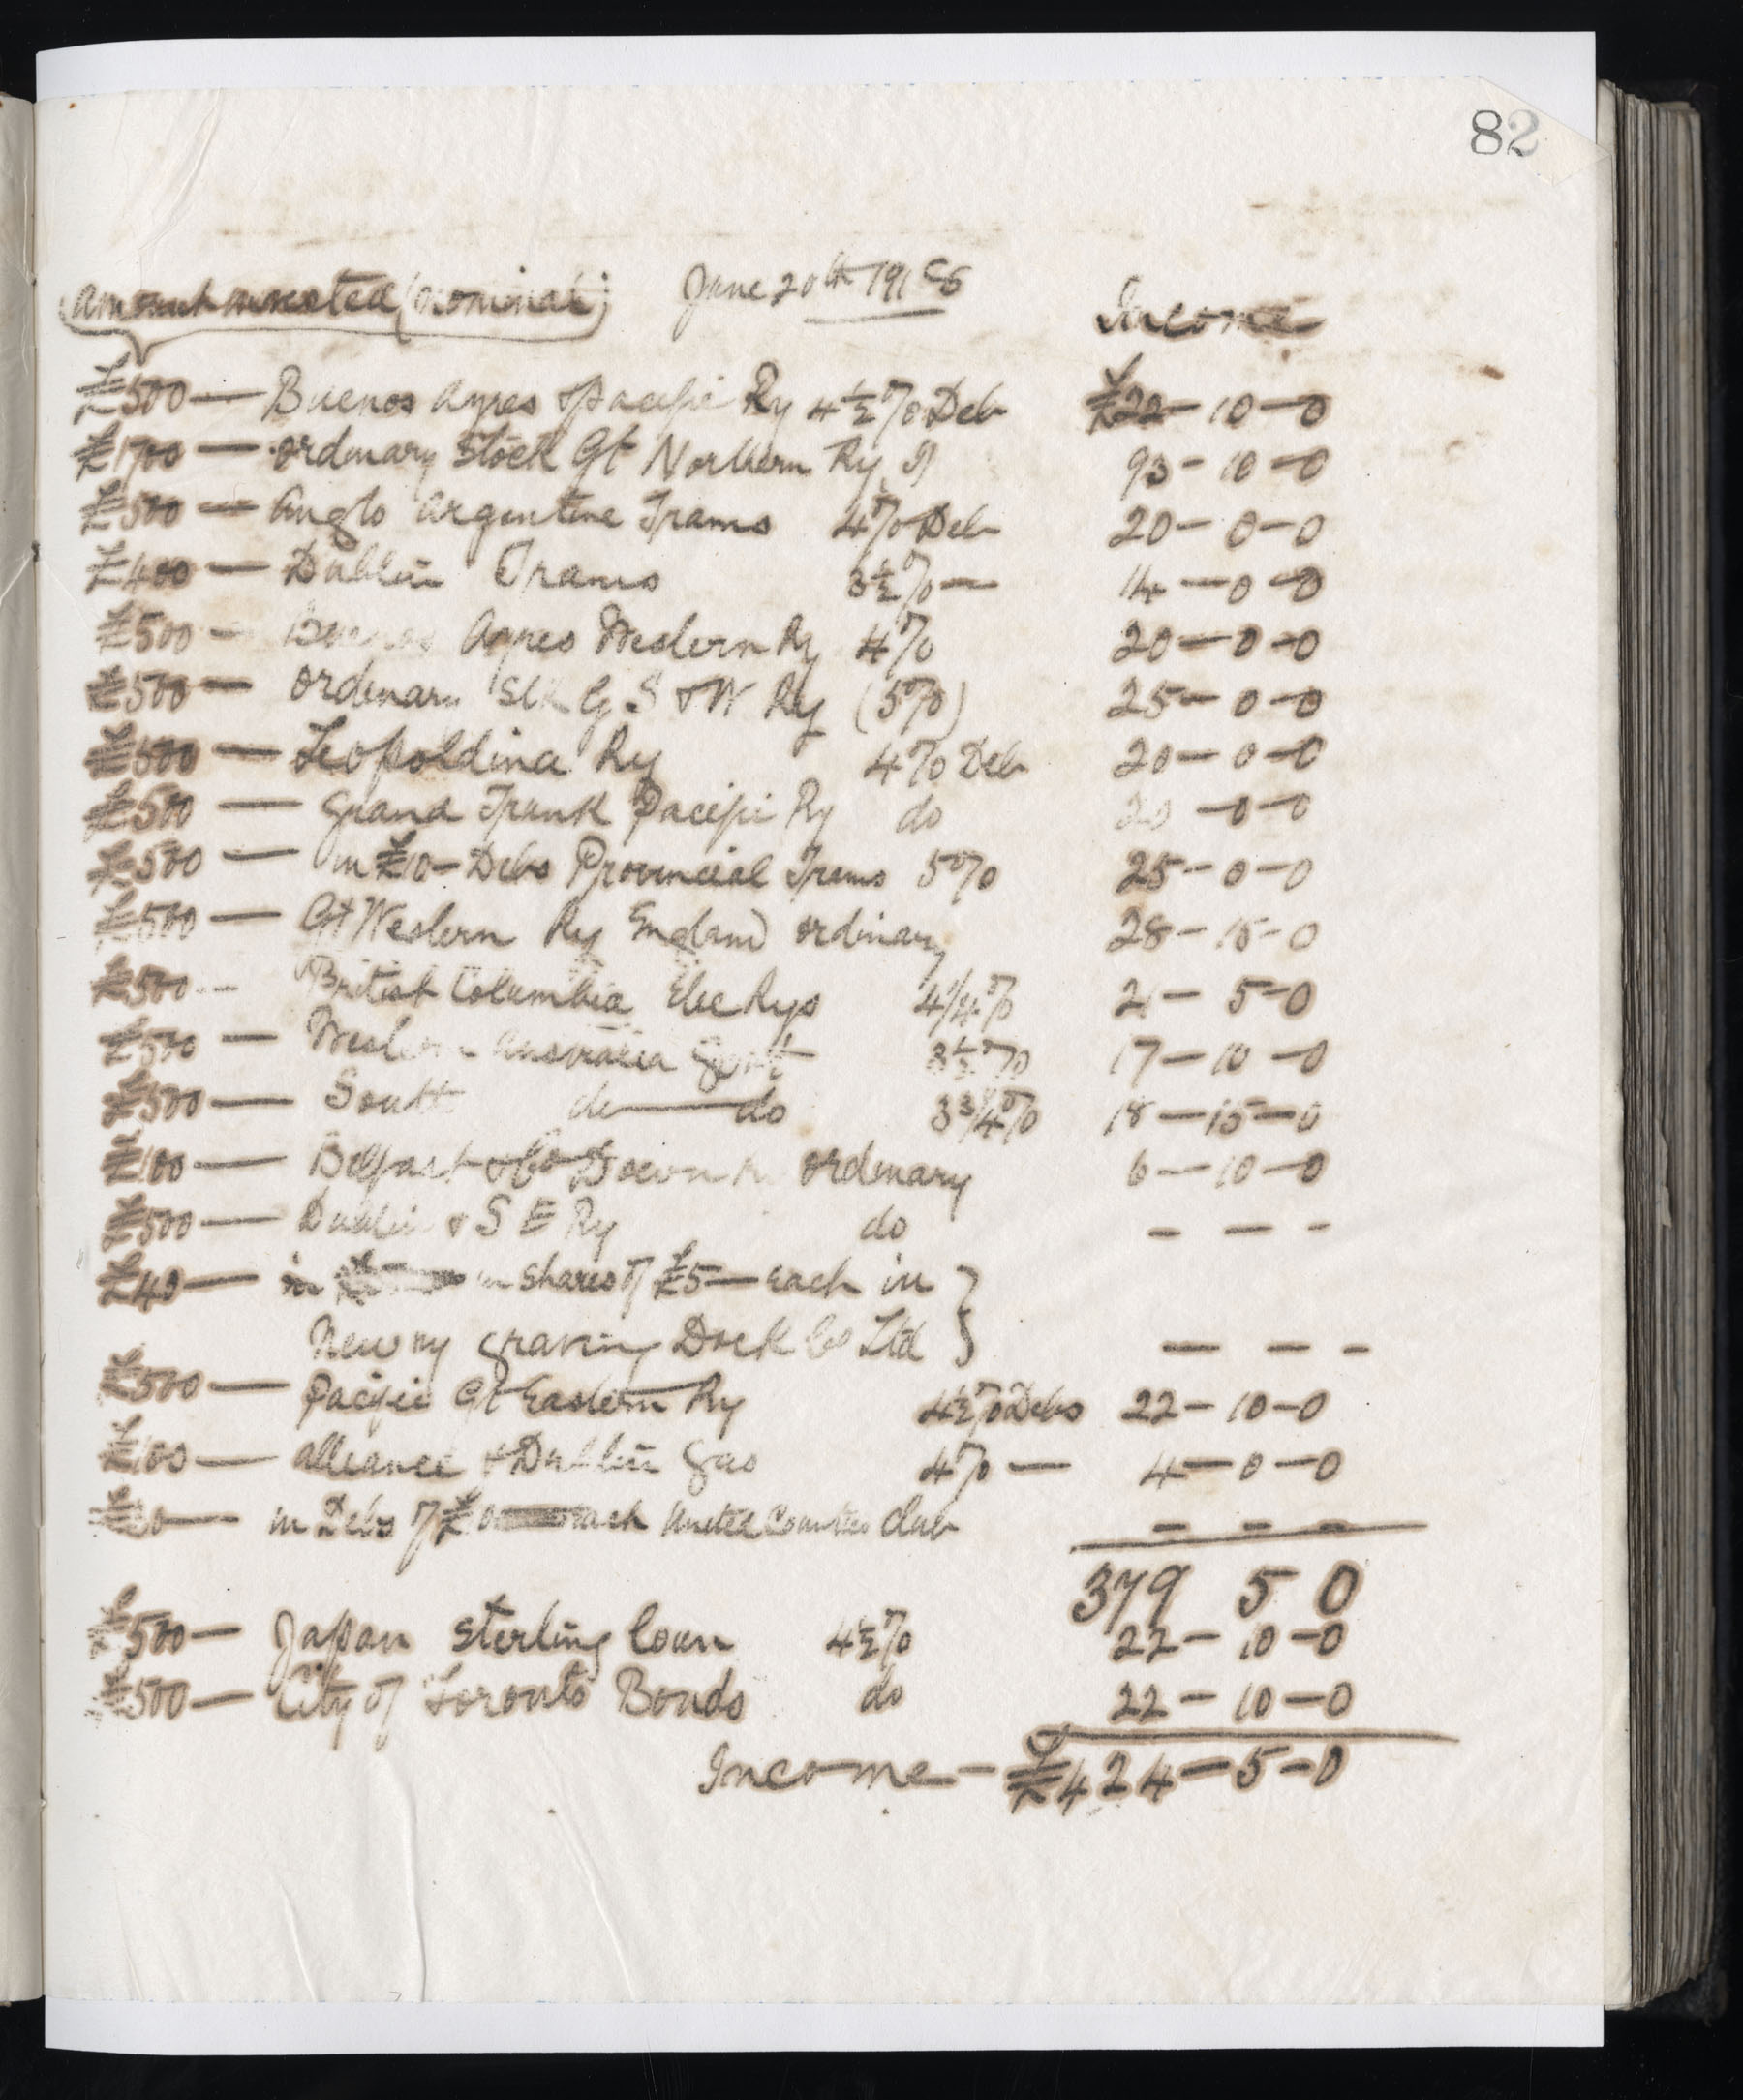 82
Amount invested (nominal) June 20th 191 Income
£500 — Buenos Ayres & Pacific Ry 4½% Deb £22 - 10 - 0
£1700 — Ordinary Stock Gt Northern Ry 93 - 10 - 0
£500 — Anglo Argentine Trams 4% Deb 20 - 0 - 0
£400 — Dublin Trams 3½% — 14 - 0 - 0
£500 — Buenos Ayres Western Ry 4% 20 - 0 - 0
£500 — Ordinary Stk G S & W Ry (5%) 25 - 0 - 0
£500 — Leopoldina Ry 4% Deb 20 - 0 - 0
£500 — Grand Trunk Pacific Ry do 20 - 0 - 0
£500 — in £10 - Debs Provincial Trams 5% 25 - 0 - 0
£500 — Gt Western Ry England ordinary 28 - 15 - 0
£500 — British Columbia Elec Rys 4¼% 21 - 5 - 0
£500 — Western Australia Govt 3½% 17 - 10 - 0
£500 — South do — do 3¾% 18 - 15 - 0
£100 — Belfast & Co Down Ry ordinary 6 - 10 - 0
£500 — Dublin & S E Ry do - - -
£40 — in shares of £5 — each in }
Newry Graving Dock Co Ltd } - - -
£500 — Pacific Gt Eastern Ry 4½% Debs 22 - 10 - 0
£100 — Alliance & Dublin Gas 4% — 4 - 0 - 0
in Debs of each United Counties Club - - -
379 5 0
£500 — Japan Sterling Loan 4½% 22 - 10 - 0
£500 — City of Toronto Bonds do 22 - 10 - 0
Income - £424 - 5 - 0